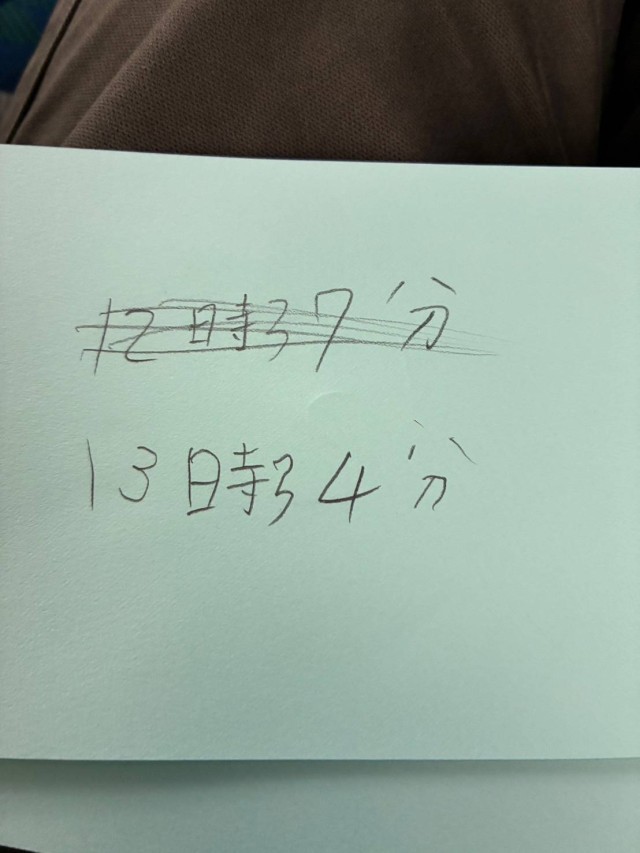 12時37分
13時34分